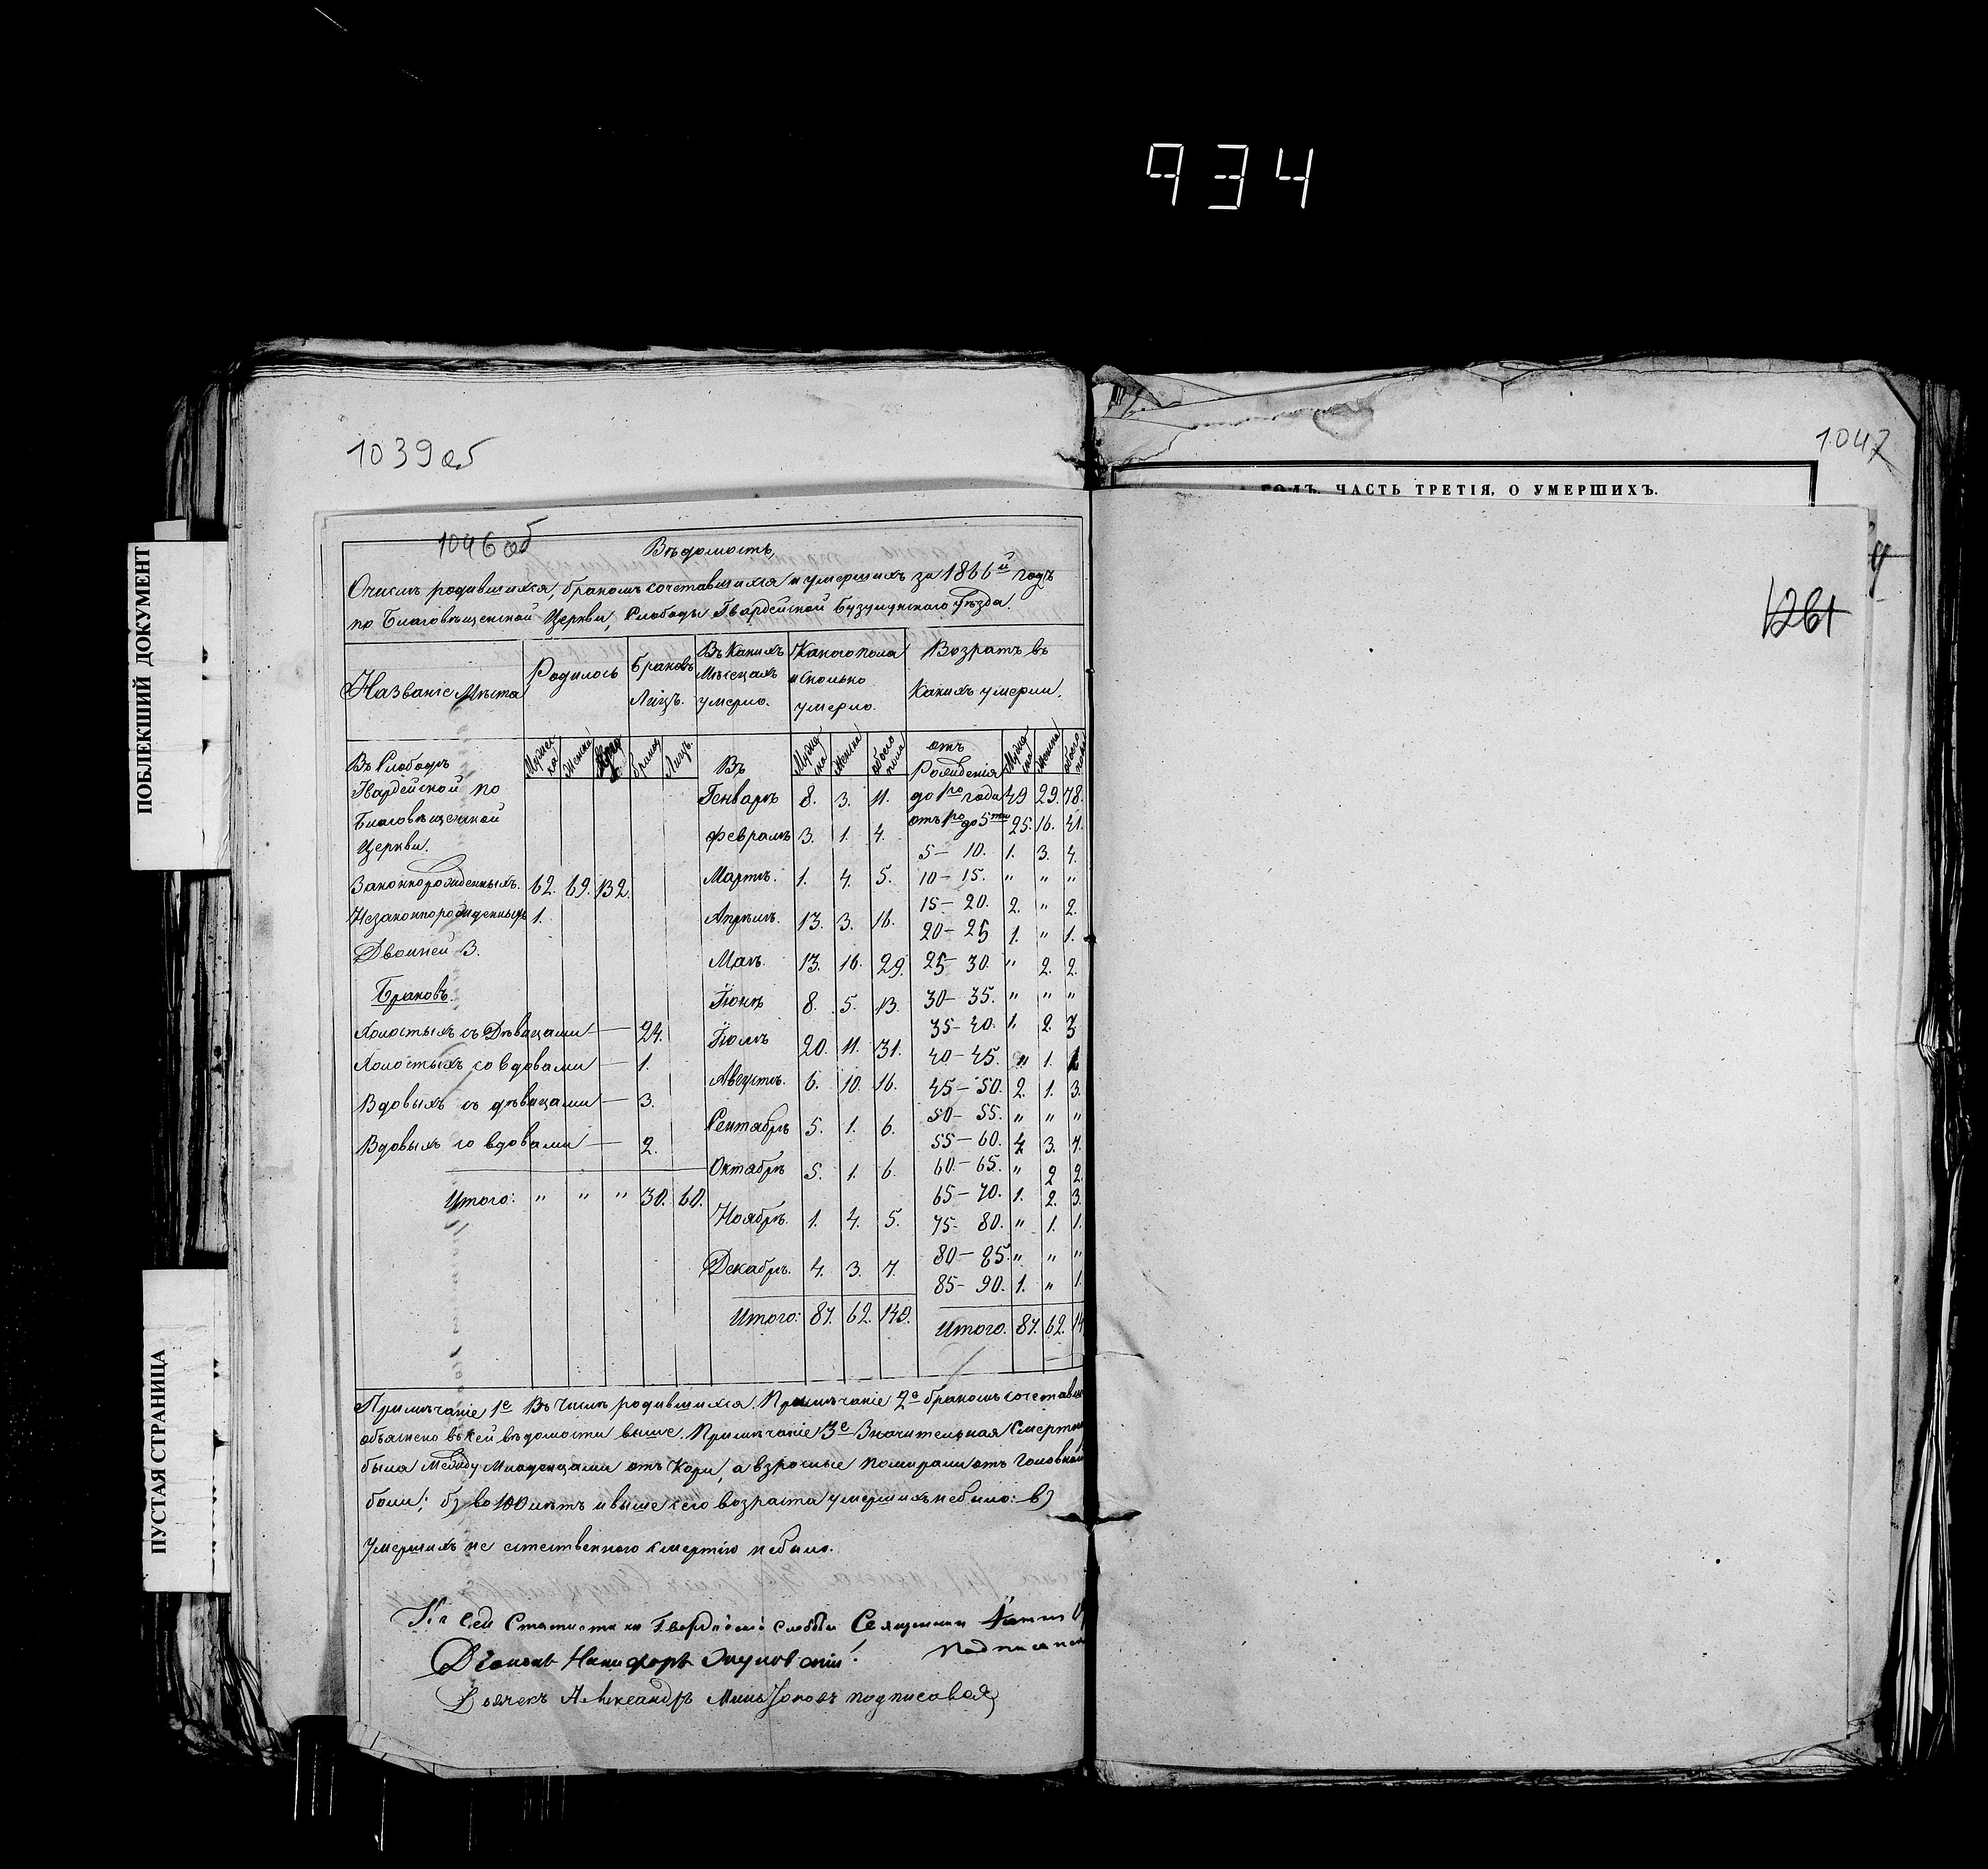 934
1039об
1047
ГОДЪ, ЧАСТЬ ТРЕТІЯ, О УМЕРШИХЪ.
1261
ПОБЛЕКШИЙ ДОКУМЕНТ
ПУСТАЯ СТРАНИЦА
1046об
Вѣдомость,
О числѣ родившихся, бракомъ сочетавшихся и умершихъ за 1866й годъ
по Благовѣщенской Церкви, Слободы Гвардейской Бузулукскаго Уѣзда.
Названіе Мѣста
Родилось
Браковъ Лицъ.
Въ Какихъ Мѣсецахъ умерло.
Какого пола и сколько умерло.
Возратъ въ Какихъ умерли.
Въ Слободѣ
Гвардейской по
Благовѣщенской
Церкви.
Мужес-ка Женска Браков Лицъ.
Въ Мужс-ка Женска обоего пола
отъ Рожденія Мужс-ка Женска обоего пола
Генварѣ 8. 3. 11. до 1го года 49 29. 78.
Февралѣ 3. 1. 4. отъ 1го до 5ти 25. 16. 41.
5 — 10. 1. 3. 4.
Законнорожденныхъ. 62. 69. 132. Мартѣ. 1. 4. 5. 10 — 15. " " "
15 — 20. 2. " 2.
Незаконнорожденныхъ 1. Апрѣлѣ. 13. 3. 16. 20 — 25 1. " 1.
Двойней 3. Маѣ. 13. 16. 29. 25 — 30. " 2. 2.
Браковъ. Іюнѣ 8. 5. 13. 30 — 35. " " "
Холостыхъ съ Дѣвицами — 24. Іюлѣ 20. 11. 31. 35 — 40. 1. 2. 3.
Холостыхъ со вдовами — 1. 40 — 45. " 1. 1
Августѣ. 6. 10. 16. 45 — 50. 2. 1. 3.
Вдовыхъ съ дѣвицами — 3. 50 — 55. " " "
Сентябрѣ 5. 1. 6. 55 — 60. 4 3. 7.
Вдовыхъ со вдовами — 2. Октябрѣ 5. 1. 6. 60 — 65. " 2 2.
Итого: " " " 30. 60. 65 — 70. 1. 2. 3.
Ноябрѣ. 1. 4. 5. 75 — 80. " 1. 1.
80 — 85. " " "
Декабрѣ. 4. 3. 7. 85 — 90. 1. " 1.
Итого: 87. 62. 149. Итого. 87. 62. 14
Примѣчаніе 1е Въ Числѣ родившихся. Примѣчаніе 2е бракомъ сочетавш
объяснено въ сей вѣдомости выше. Примѣчаніе 3е Значительная Смертно
была Между Младенцами отъ Кори, а взрослые помирали отъ головной
боли; б) во 100 лѣтъ и выше сего возраста умершихъ небыло: в)
Умершихъ не естественною смертію небыло.
Къ сей Статистики Гвардейской слободы Священник
подписался
Діаконъ Никифоръ
Дьячекъ Александръ подписовался